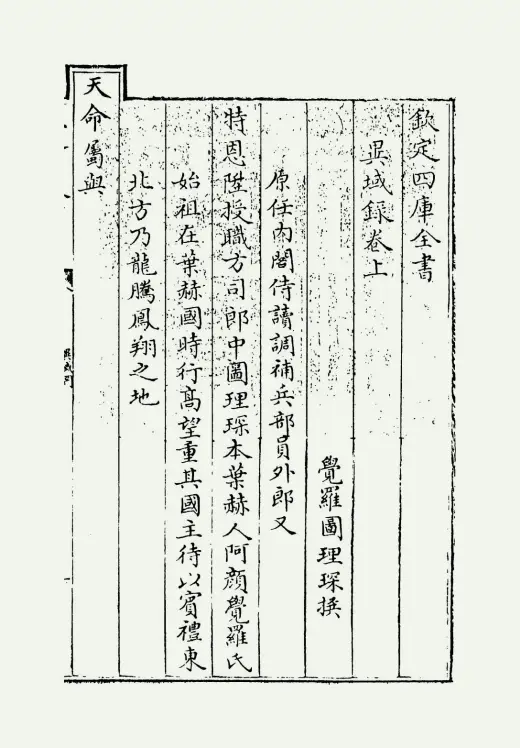 欽定四庫全書
異域錄卷上
覺羅圖理琛撰
原任内閣侍讀調補兵部員外郎又
特恩陞授職方司郎中圖理琛本葉赫人阿顏覺羅氏
始祖在葉赫國時行髙望重其國主待以賓禮東
北方乃龍騰鳳翔之地
天命屬與